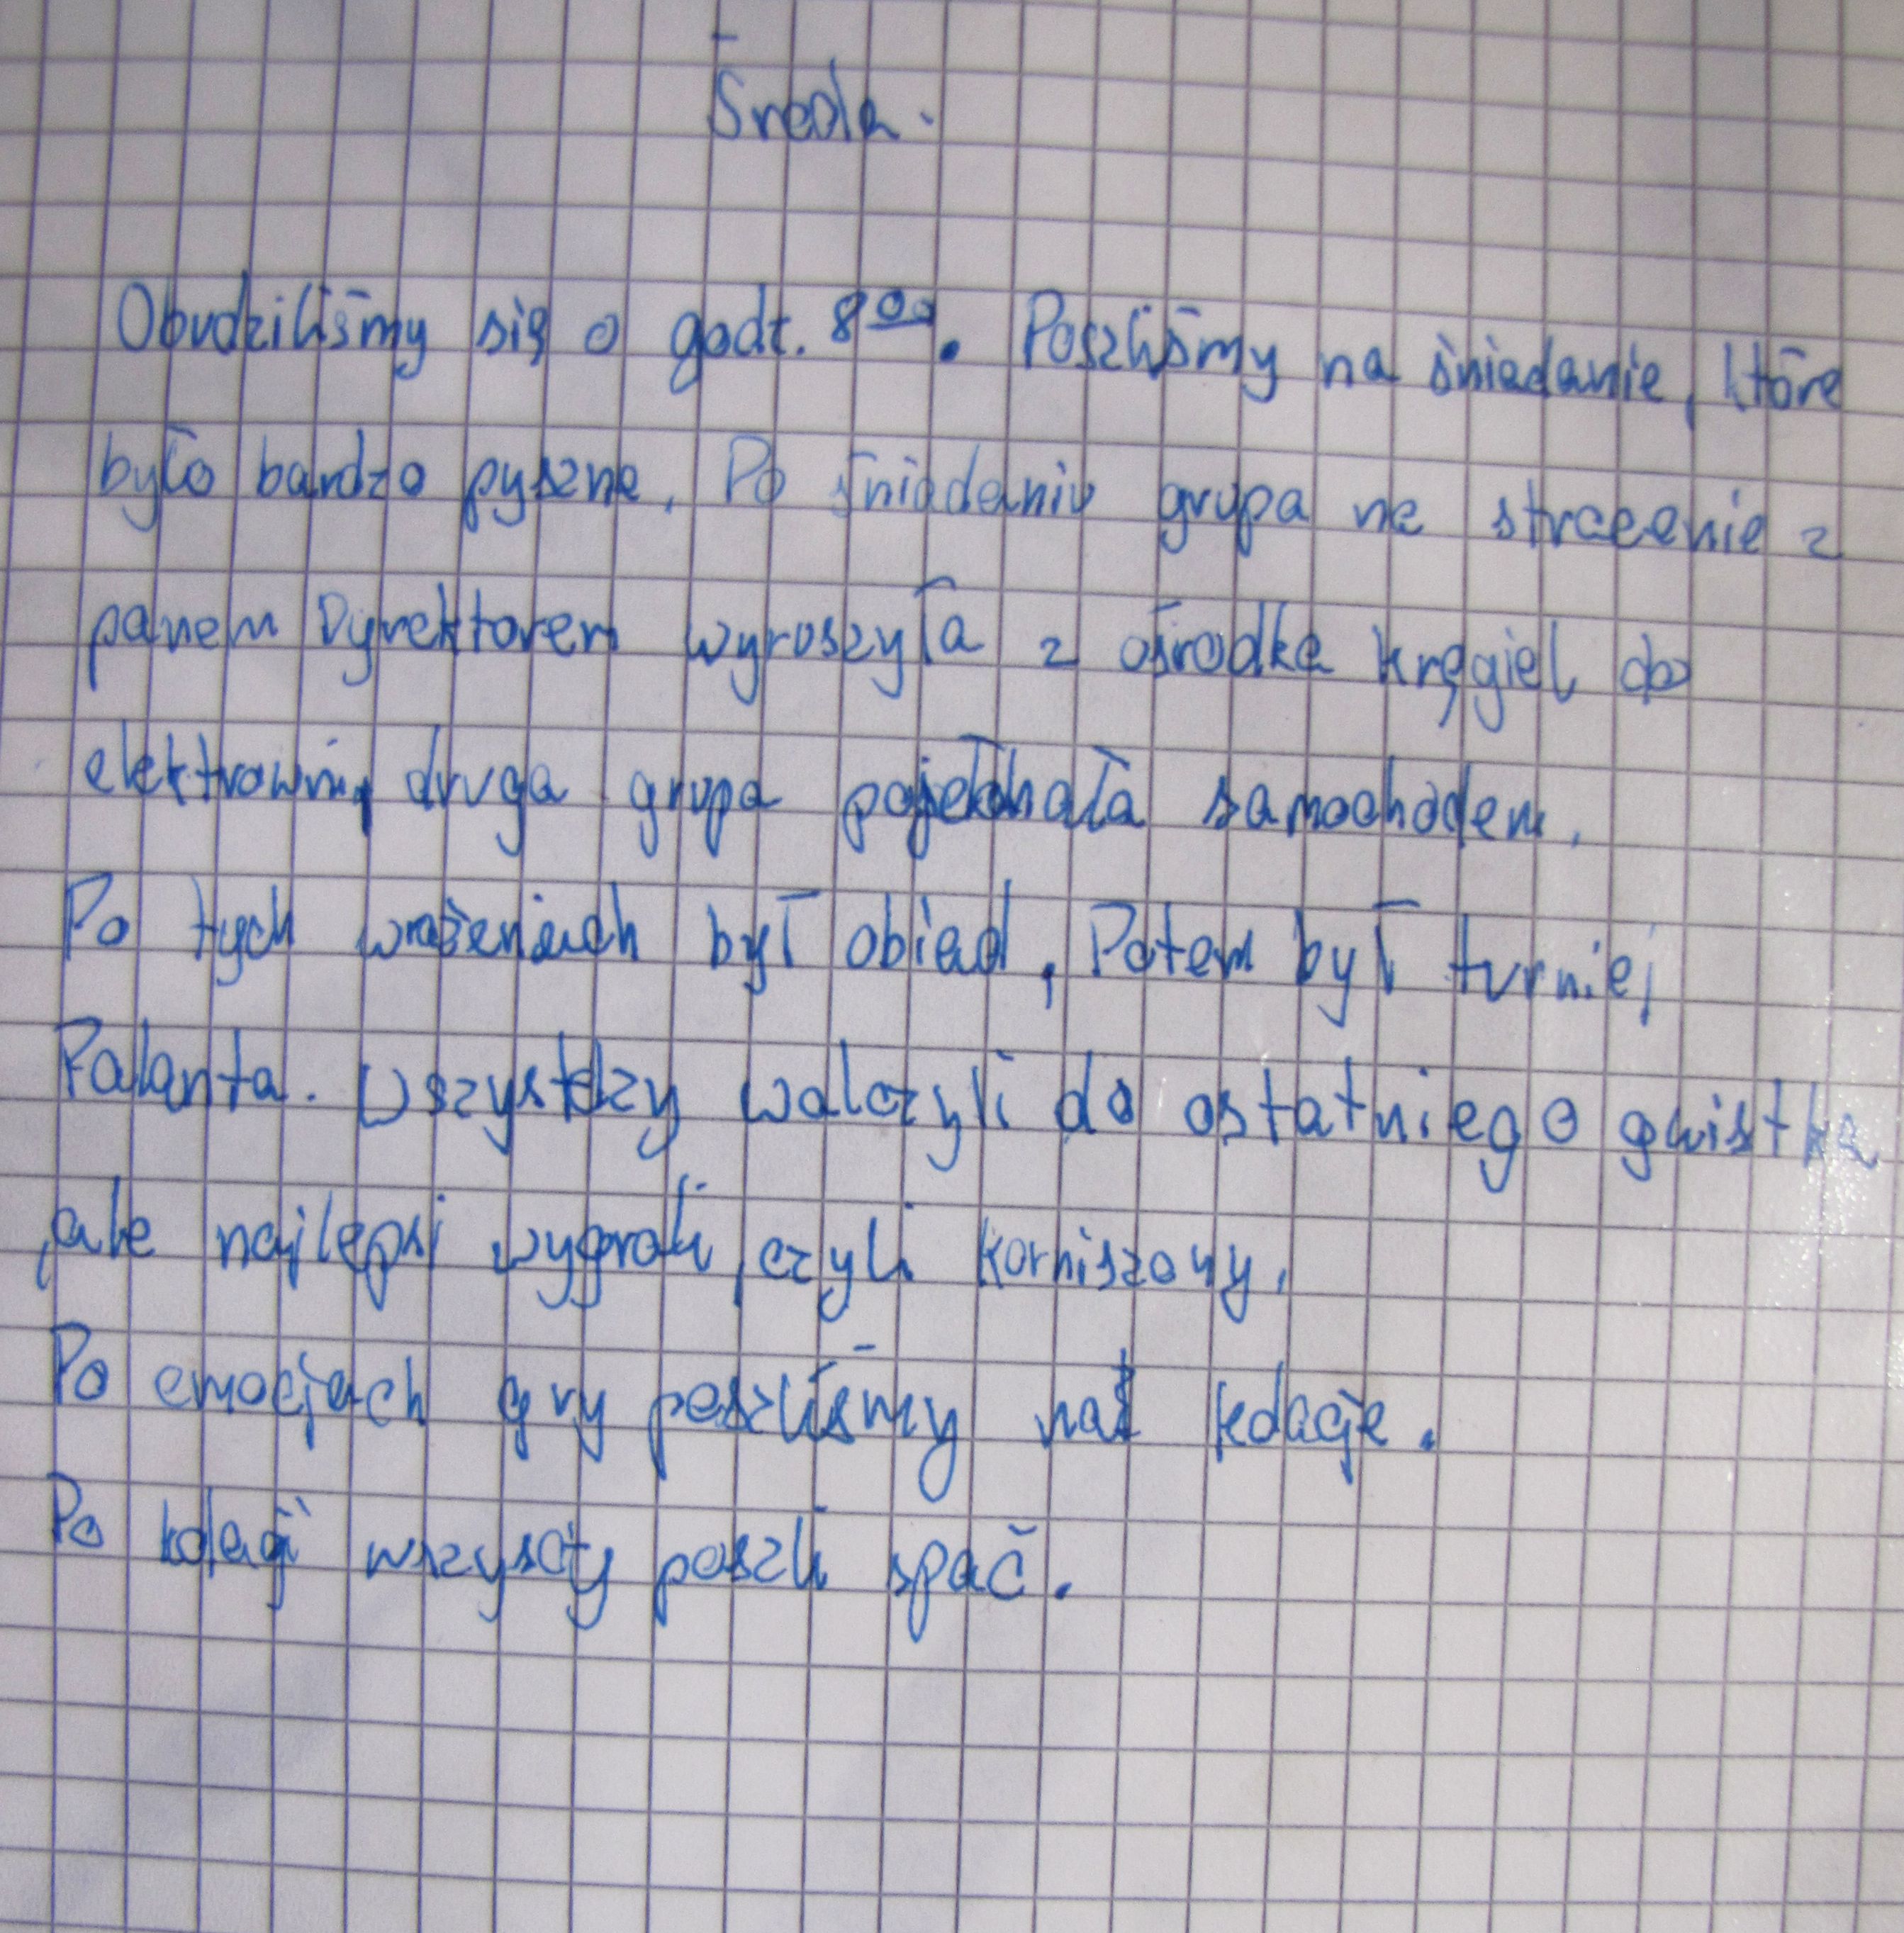 Środa.
Obudziliśmy się o godz. 8⁰⁰. Poszliśmy na śniadanie, które
było bardzo pyszne. Po śniadaniu grupa na stracenie z
panem Dyrektorem wyruszyła z ośrodka Kręgiel do
elektrowni, druga grupa pojechała samochodem.
Po tych wrażeniach był obiad, Potem był turniej
Palanta. Wszystkzy walczyli do ostatniego gwistka
,ale najlepsi wygrali, czyli korniszony.
Po emocjach gry poszliśmy na kolacje.
Po kolacji wszyscy poszli spać.